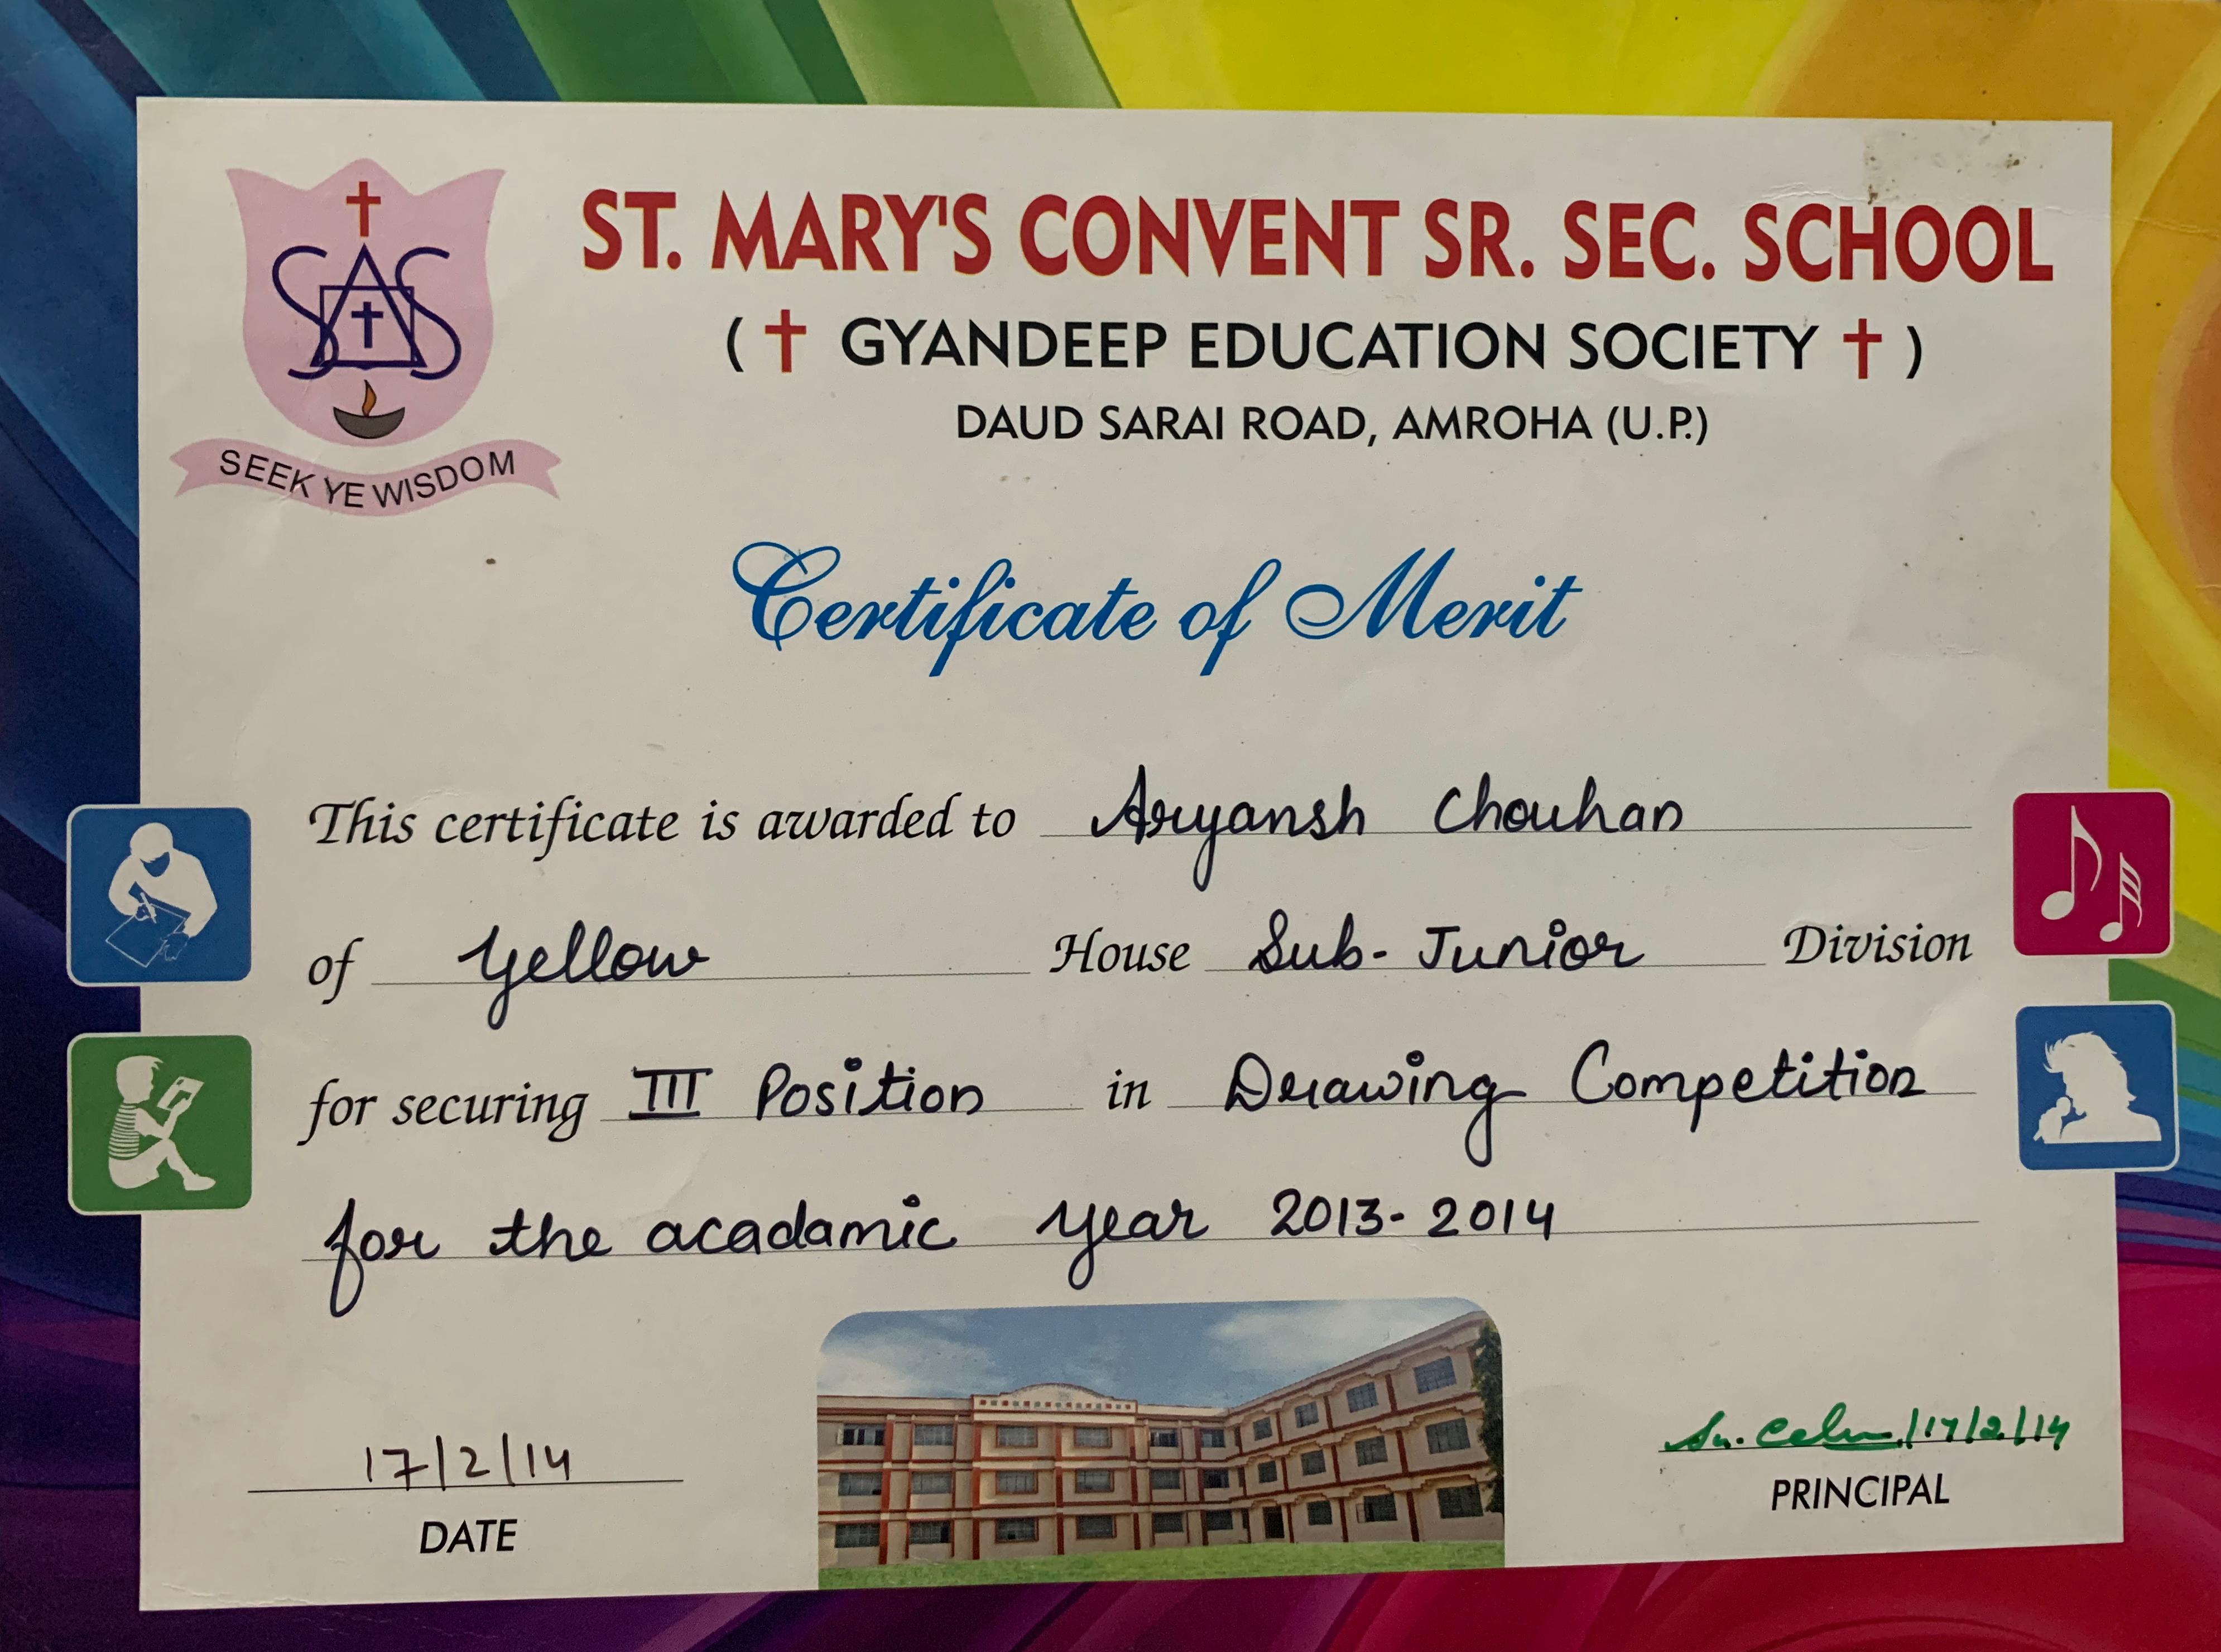 ST. MARY'S CONVENT SR. SEC. SCHOOL
( † GYANDEEP EDUCATION SOCIETY † )
DAUD SARAI ROAD, AMROHA (U.P.)
SAS
SEEK YE WISDOM
Certificate of Merit
This certificate is awarded to Aryansh Chouhan
of Yellow House Sub-Junior Division
for securing III Position in Drawing Competition
for the acadamic year 2013-2014
17/2/14
DATE
17/2/14
PRINCIPAL